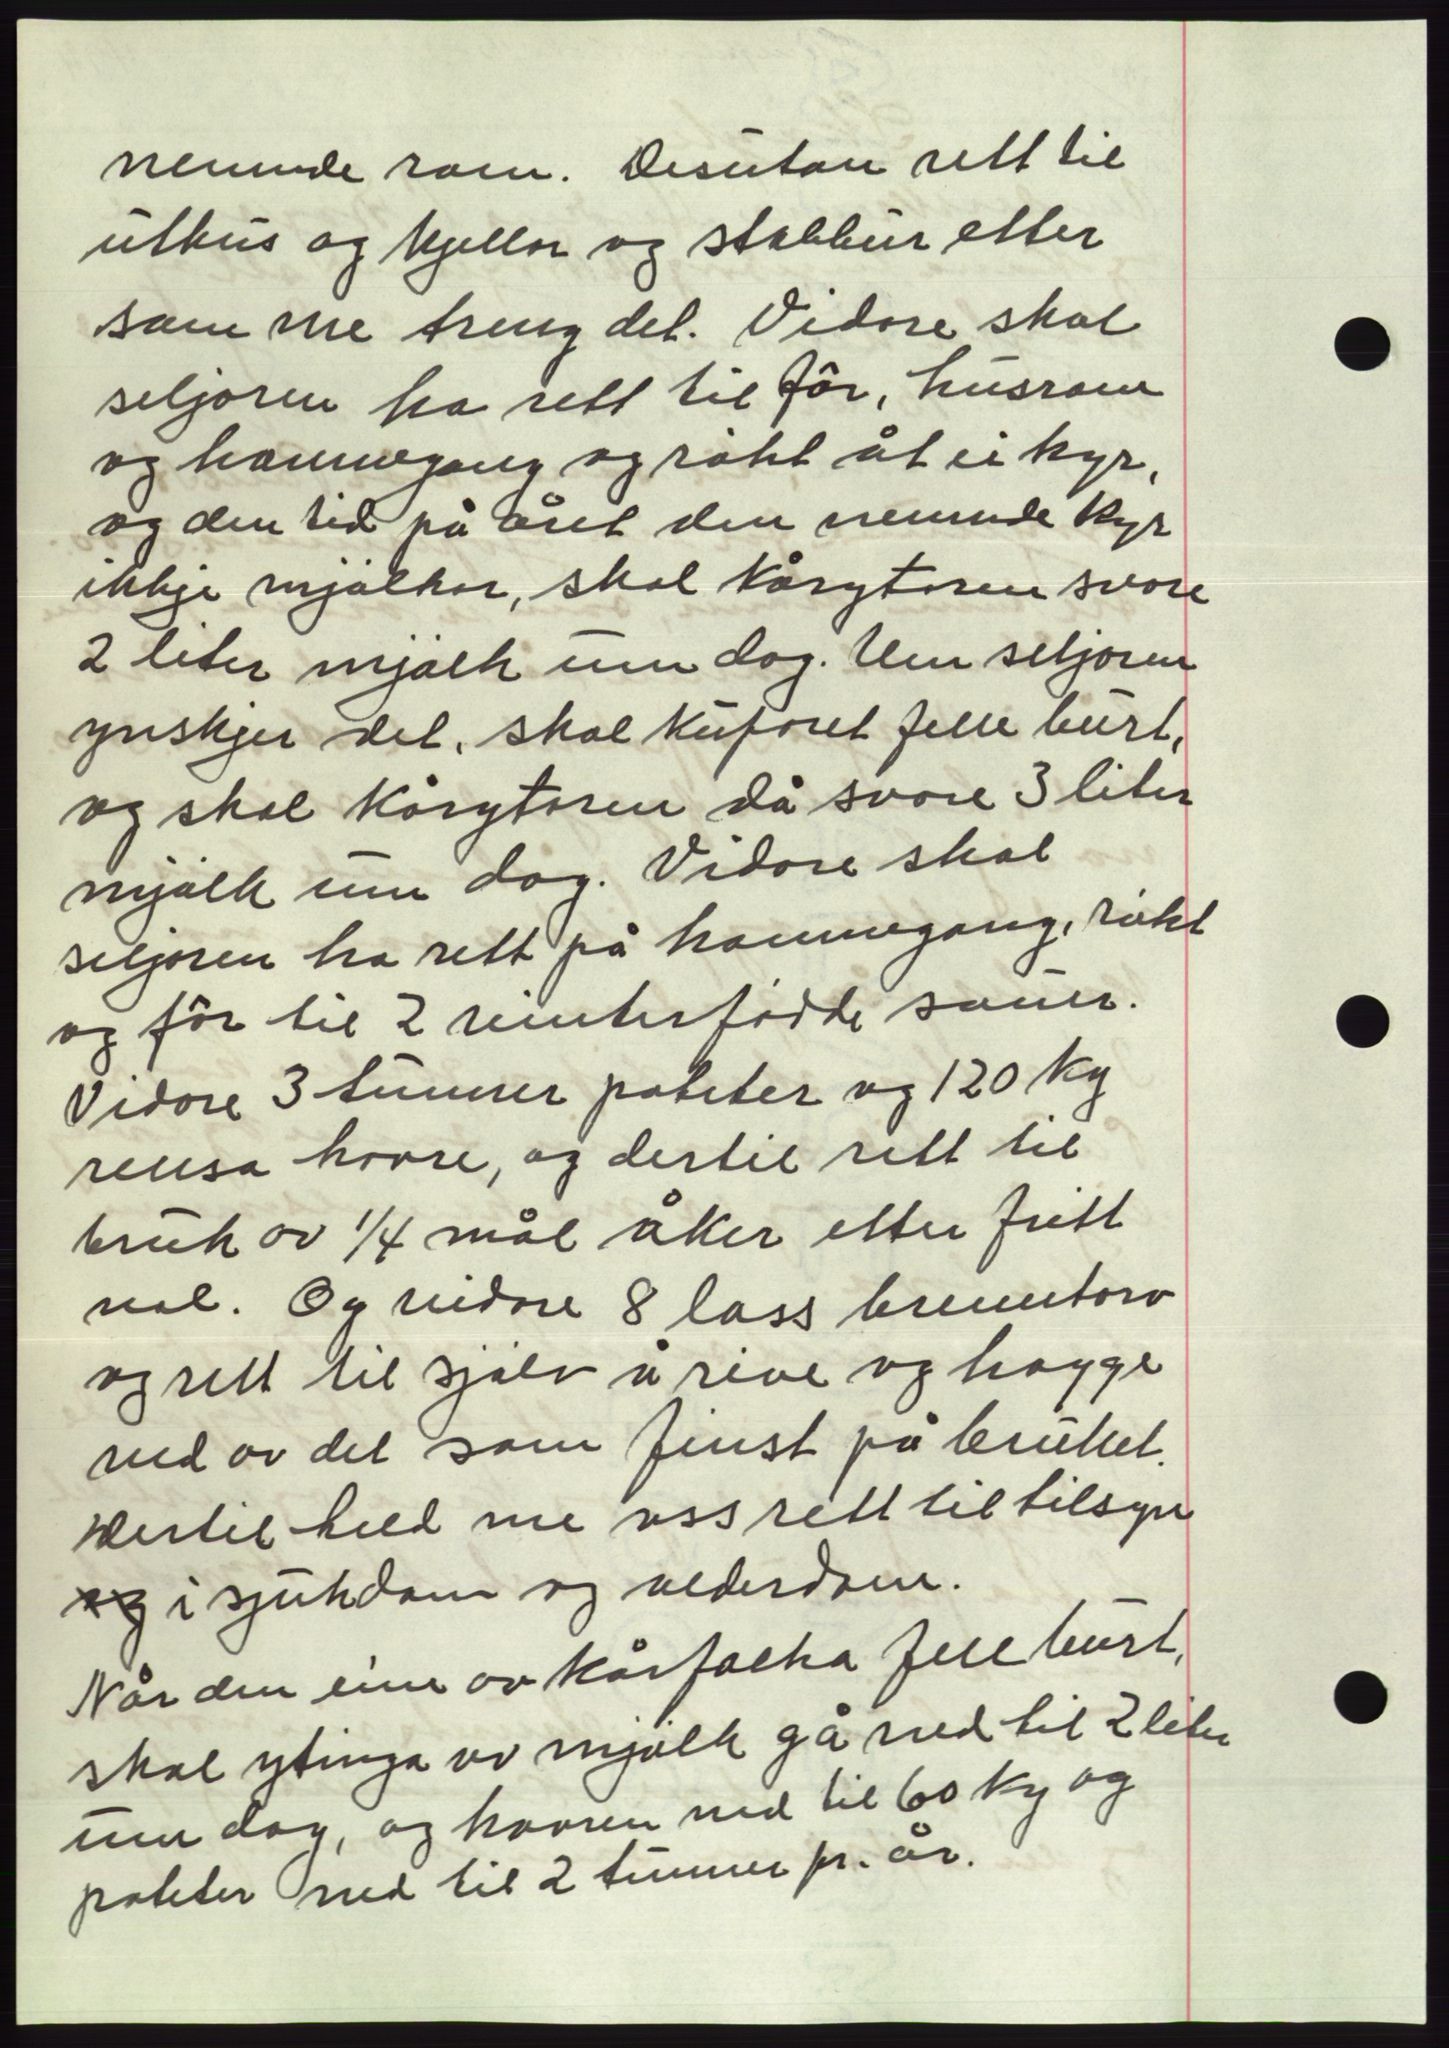 nemnde rom. Desutan rett til
uthus og kjellar og stabbur etter
som me treng det. Vidare skal
seljaren ha rett til fôr, husrom
og hamnegang og røkt åt ei kyr,
og den tid på året den nemnde kyr
ikkje mjølkar, skal kårytaren svare
2 liter mjølk um dag. Um seljaren
ynskjer det, skal kufôret felle burt,
og skal kårytaren då svare 3 liter
mjølk um dag. Vidare skal
seljaren ha rett på hamnegang, røkt
og fôr til 2 vinterfødde sauer.
Vidare 3 tunner poteter og 120 kg
rensa havre, og dertil rett til
bruk av 1/4 mål åker etter fritt
val. Og vidare 8 lass brenntorv
og rett til sjølv å rive og hogge
ved av det som finst på bruket.
Dertil held me oss rett til tilsyn
og i sjukdom og alderdom.
Når den eine av kårfolka fell burt,
skal ytinga av mjølk gå ned til 2 liter
um dag, og havren ned til 60 kg og
poteter ned til 2 tunner pr. år.